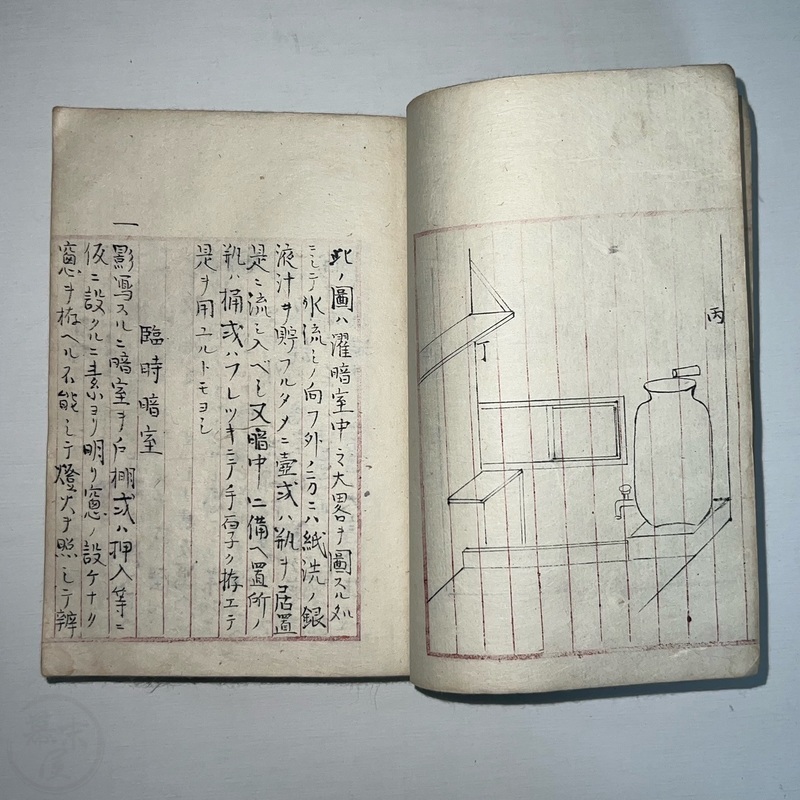 丙
丁
此ノ圖ハ濯暗室中之大畧ヲ圖スル処
ニシテ水流シノ向フ外ノ方ニハ紙洗ノ銀
液汁ヲ貯フルタメニ壺或ハ瓶ヲ居置
是ニ流シ入ベシ又暗中ニ備ヘ置所ノ
瓶ハ桶或ハブレツキニテ手 ク拵エテ
是ヲ用ユルトモヨシ
臨時暗室
一 影寫スルニ暗室ヲ戸棚或ハ押入等ニ
仮ニ設クルニ素ヨリ明リ窓ノ設ケナク
窓ヲ拵ヘル不能シテ燈火ヲ照シテ辨